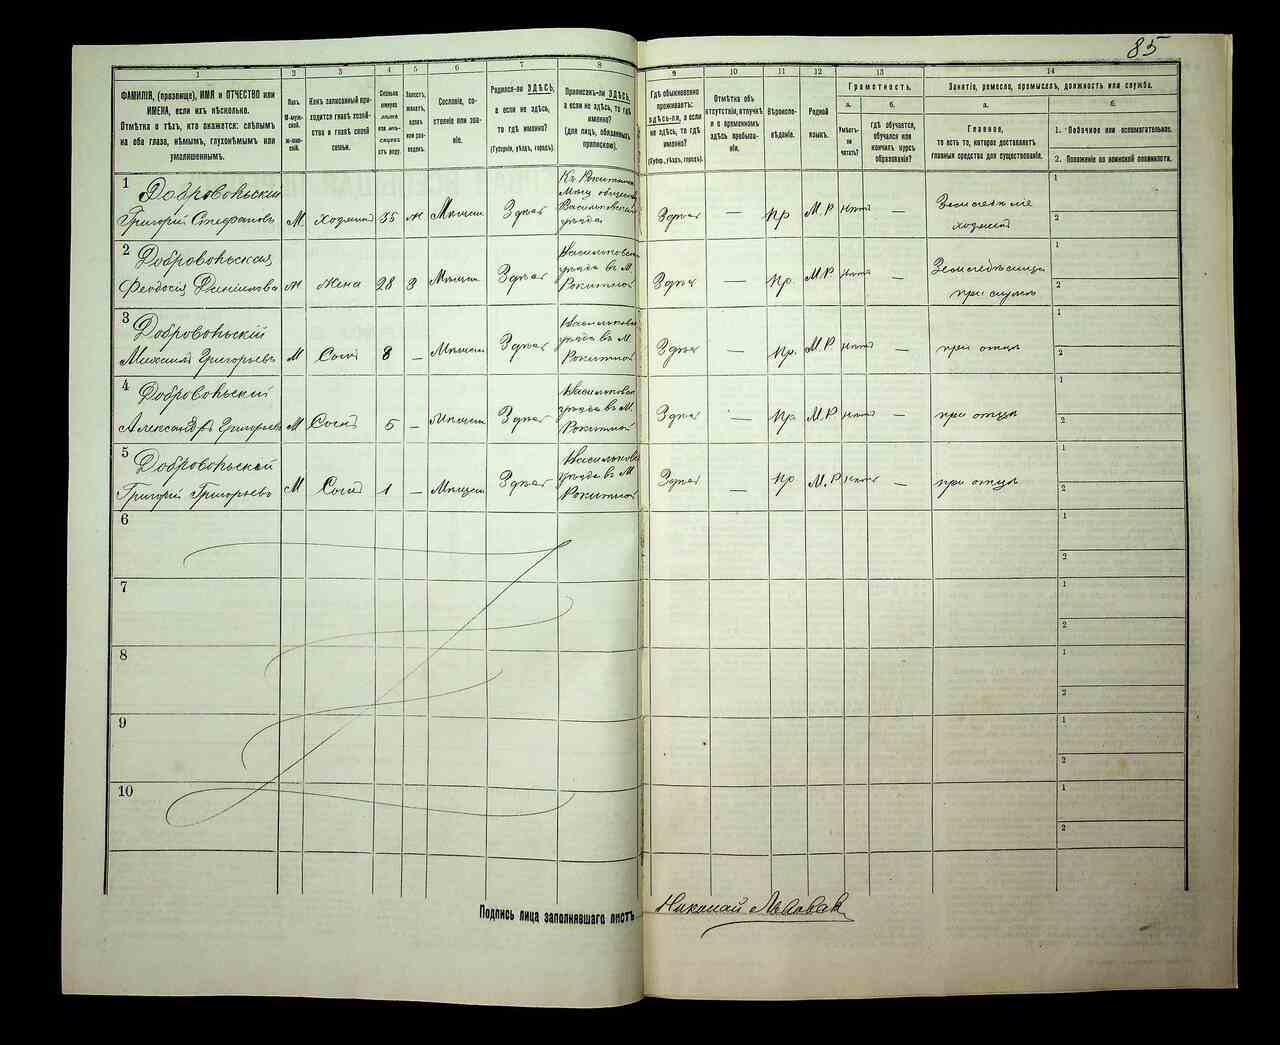 85
1
2
3
4
5
6
7
8
9
10
11
12
13
14
ФАМИЛІЯ, (прозвище), ИМЯ и ОТЧЕСТВО или
ИМЕНА, если ихъ нѣсколько.
Отмѣтка о тѣхъ, кто окажется: слѣпымъ
на оба глаза, нѣмымъ, глухонѣмымъ или
умалишеннымъ.
Полъ.
М-муж-
ской.
Ж-жен-
скій.
Какъ записанный при-
ходится главѣ хозяй-
ства и главѣ своей
семьи.
Сколько
минуло
лѣтъ
или мѣ-
сяцевъ
отъ роду.
Холостъ,
женатъ,
вдовъ
или раз-
веденъ.
Сословіе, со-
стояніе или зва-
ніе.
Родился-ли ЗДѢСЬ,
а если не здѣсь,
то гдѣ именно?
(Губернія, уѣздъ, городъ).
Приписанъ-ли ЗДѢСЬ,
а если не здѣсь, то гдѣ
именно?
(для лицъ, обязанныхъ
припискою).
Гдѣ обыкновенно
проживаетъ:
ЗДѢСЬ-ЛИ, а если
не здѣсь, то гдѣ
именно?
(Губер., уѣздъ, городъ).
Отмѣтка объ
отсутствіи, отлучкѣ
и о временномъ
здѣсь пребыва-
ніи.
Вѣроиспо-
вѣданіе.
Родной
языкъ.
Грамотность.
а.
б.
Умѣетъ-
ли
читать?
гдѣ обучается,
обучался или
кончилъ курсъ
образованія?
Занятіе, ремесло, промыселъ, должность или служба.
а.
б.
Главное,
то есть то, которое доставляетъ
главныя средства для существованія.
1. Побочное или вспомогательное.
2. Положеніе по воинской повинности.
1
Добровольскій
Григорій Стефановъ
М
хозяинъ
35
ж
Мѣщан
Здѣсь
Къ Рокитнян
Мѣщ обществу
Васильковскаго
уѣзда
Здѣсь
—
Пр
М.Р
нѣтъ
—
хозяинъ
1
2
2
Добровольская
Феодосія
ж
жена
28
З
Мѣщан
Здѣсь
Васильковск
уѣзда въ М.
Рокитной
Здѣсь
—
Пр.
М.Р
нѣтъ
—
при мужѣ
1
2
3
Добровольскій
Михаилъ Григорьевъ
М
Сынъ
8
—
Мѣщан
Здѣсь
Васильковск
уѣзда въ М.
Рокитной
Здѣсь
—
Пр.
М.Р
нѣтъ
—
при отцѣ
1
2
4
Добровольскій
Александръ Григорьевъ
М
Сынъ
5
—
Мѣщан
Здѣсь
Васильковск
уѣзда въ М.
Рокитной
Здѣсь
—
Пр
М.Р
нѣтъ
—
при отцѣ
1
2
5
Добровольскій
Григорій Григорьевъ
М
Сынъ
1
—
Мѣщан
Здѣсь
Васильковск
уѣзда въ М
Рокитной
Здѣсь
—
Пр
М.Р
нѣтъ
—
при отцѣ
1
2
6
1
2
7
1
2
8
1
2
9
1
2
10
1
2
Подпись лица заполнявшаго листъ
Николай